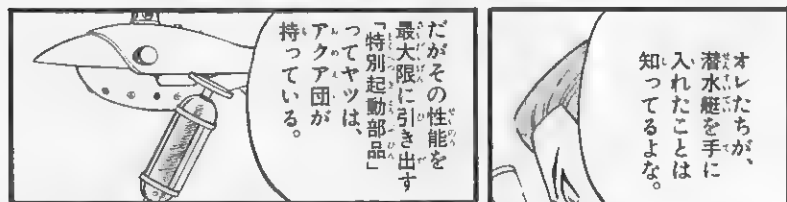 オレたちが、
潜水艇を手に
入れたことは
知ってるよな。
だがその性能を
最大限に引き出す
「特別起動部品」
ってヤツは、
アクア団が
持っている。